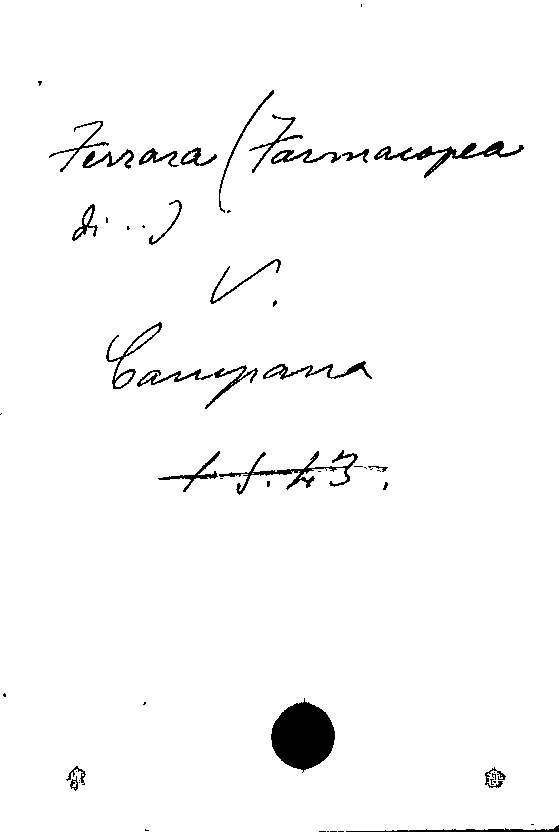 Ferrara (Farmacopea
di ..)
V.
Campana